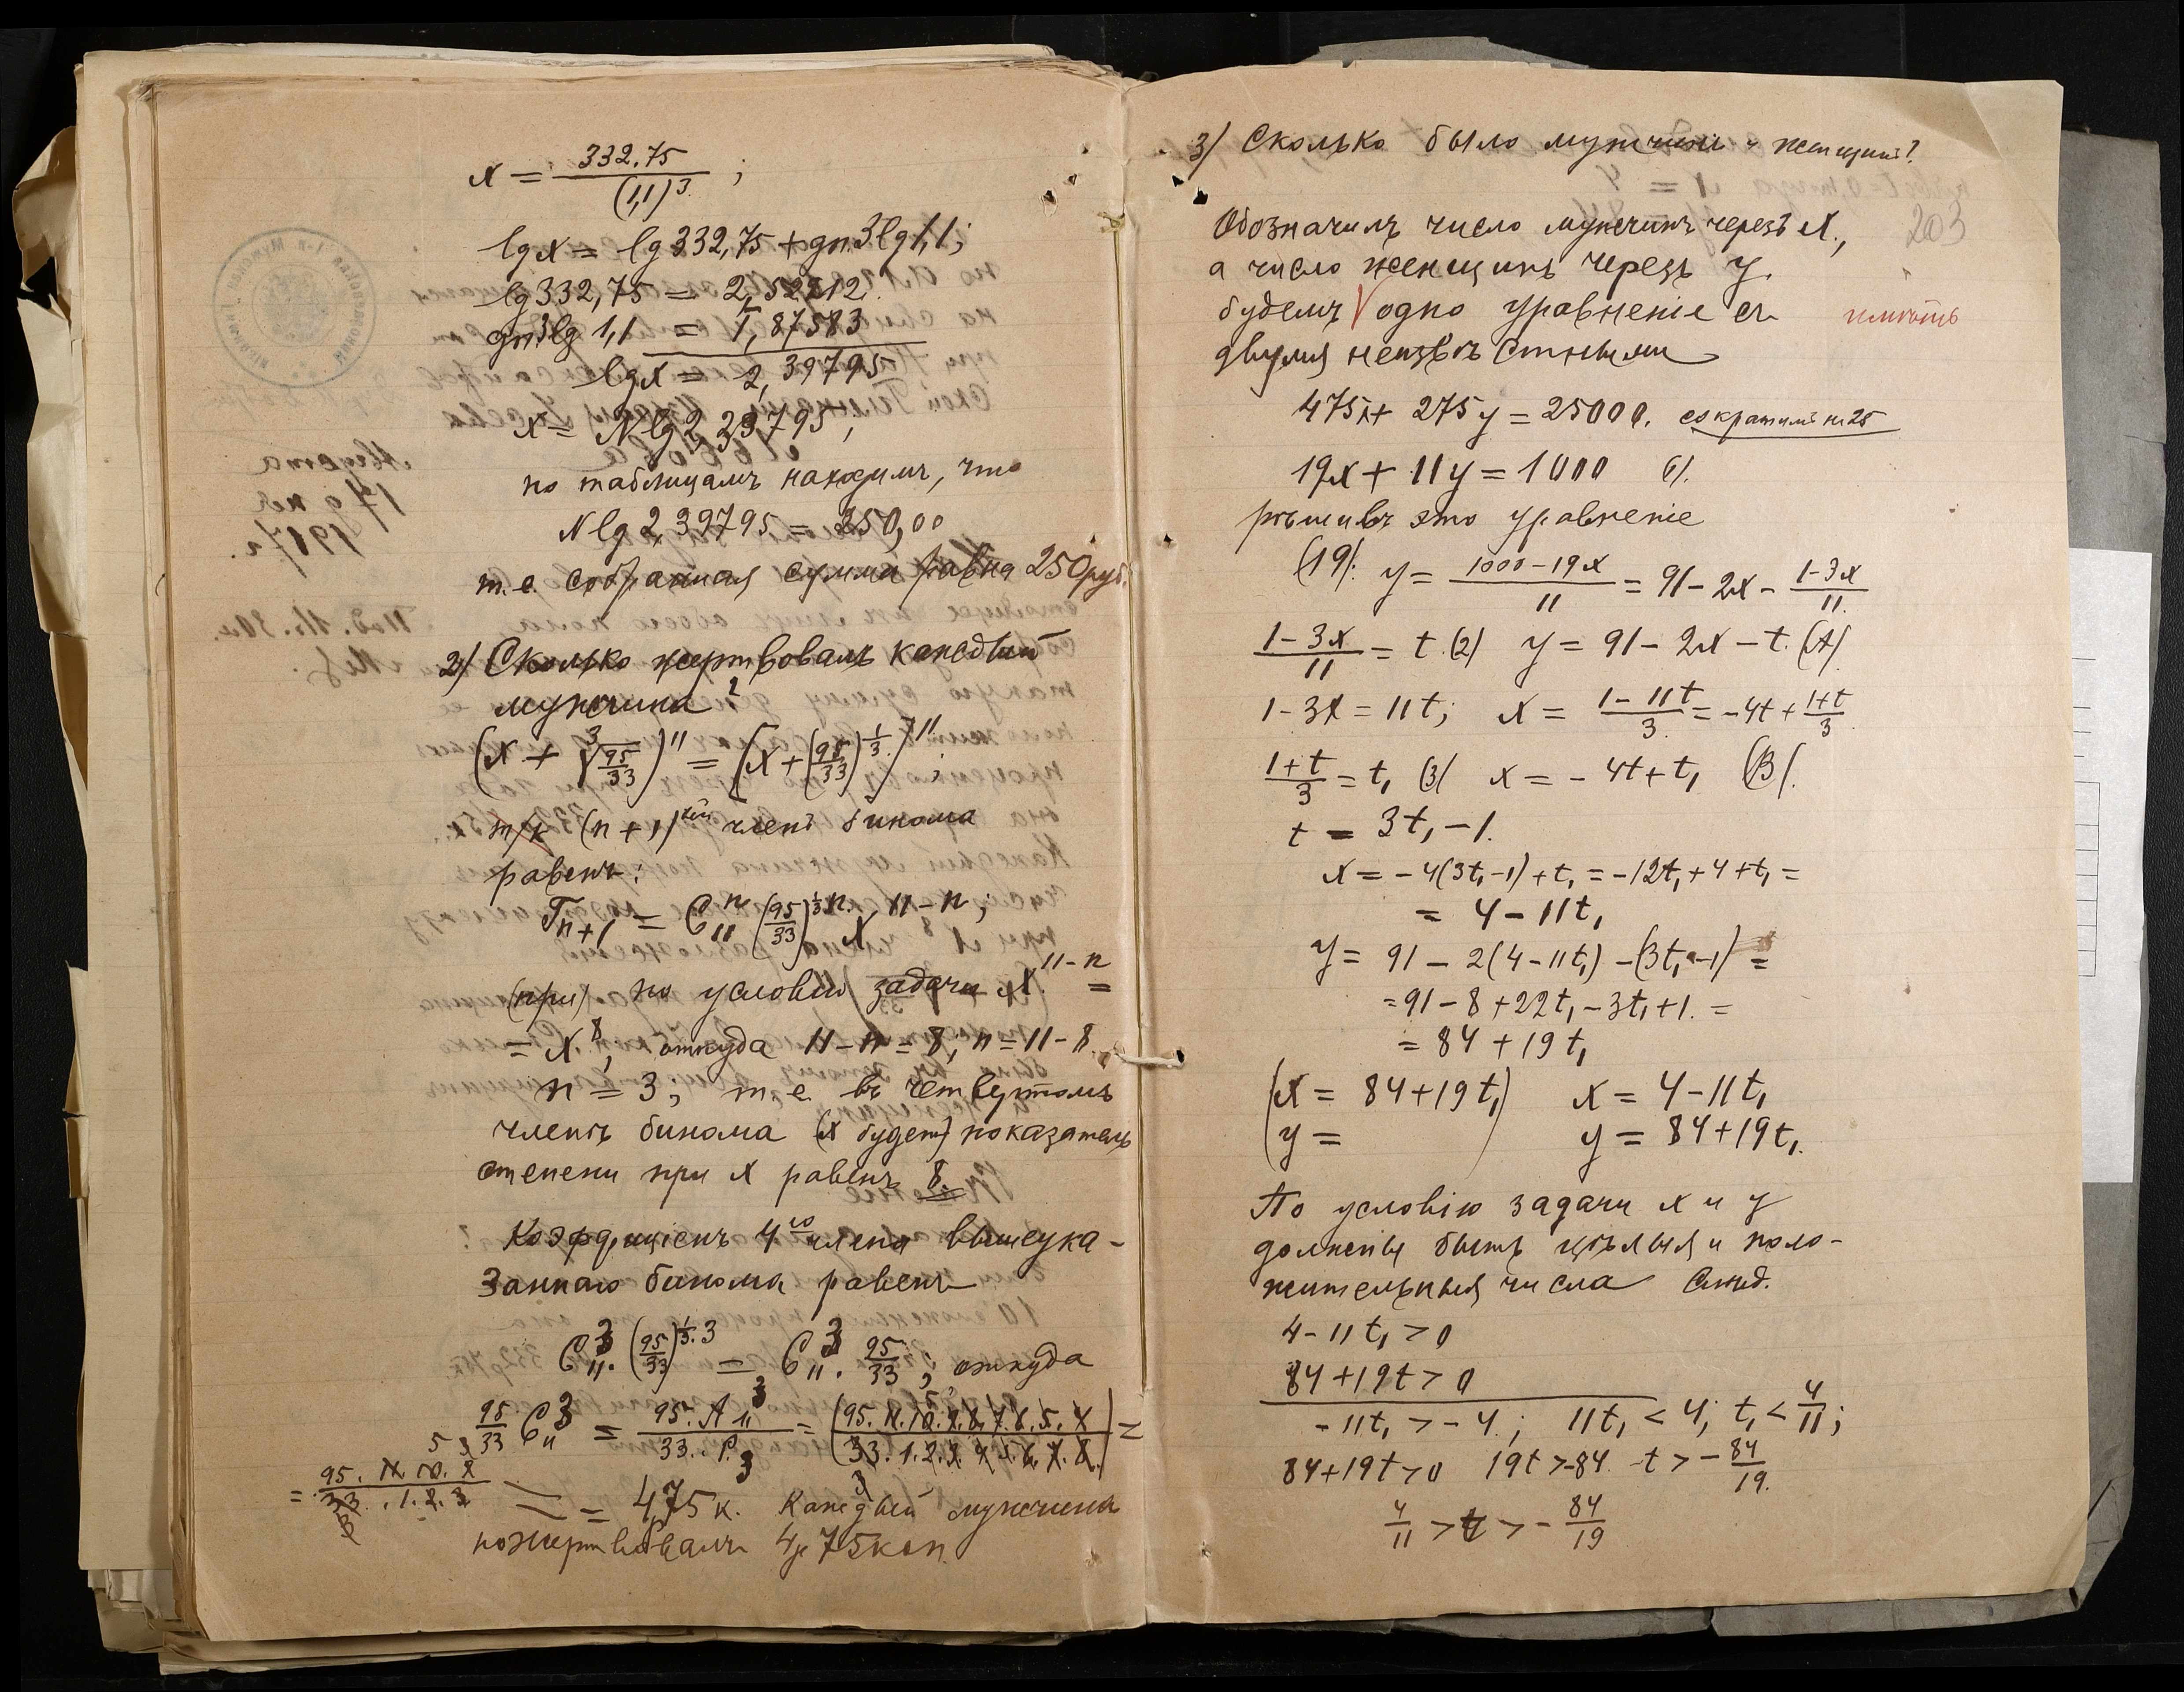 x = 332,75 / (1,1)³ ;
lg x = lg 332,75 + дп. 3 lg 1,1;
lg 332,75 = 2,52212.
дп. 3 lg 1,1 = 1̅,87583
lg x = 2,39795
x = N lg 2,39795;
по таблицамъ находимъ, что
N lg 2,39795 = 250,00
т.е. собранная сумма равна 250 руб.
2) Сколько жертвовалъ каждый
мужчина?
(x + ∛(95/33))¹¹ = (x + (95/33)^(1/3))¹¹;
т/к (n+1)ый членъ бинома
равенъ:
Tₙ₊₁ = C₁₁ⁿ (95/33)^(1/3 n) . x^(11-n);
(при) по условію задачи x^(11-n) =
= x⁸; откуда 11-n = 8; n = 11-8.
n = 3; т.е. въ четвертомъ
членѣ бинома (x будетъ) показатель
степени при x равенъ 8.
Коэффиціентъ 4го члена вышеука-
заннаго бинома равенъ
C₁₁³ . (95/33)^(1/3 . 3) = C₁₁³ . 95/33; откуда
95/33 C₁₁³ = 95. A₁₁³ / 33. P₃ = (95. 11. 10. 9. 8. 7. 6. 5. 4 / 33. 1. 2. 3. 4. 5. 6. 7. 8.) =
= 95. 11. 10. 9 / 33. 1. 2. 3 = 475 к. Каждый мужчина
пожертвовалъ 4 р 75 коп
3) Сколько было мужчинъ и женщинъ?
Обозначимъ число мужчинъ черезъ x.,
203
а число женщинъ черезъ y.
будемъ √ одно уравненіе съ имѣть
двумя неизвѣстными
475x + 275y = 25000. сократимъ на 25
19x + 11y = 1000 (1).
рѣшивъ это уравненіе
(19): y = 1000-19x / 11 = 91 - 2x - 1-3x / 11.
1-3x / 11 = t. (2) y = 91 - 2x - t. (A)
1-3x = 11t; x = 1-11t / 3 = -4t + 1+t / 3
1+t / 3 = t₁ (3) x = -4t + t₁ (B).
t = 3t₁ - 1.
x = -4(3t₁-1) + t₁ = -12t₁ + 4 + t₁ =
= 4 - 11t₁
y = 91 - 2(4-11t₁) - (3t₁-1) =
= 91 - 8 + 22t₁ - 3t₁ + 1. =
= 84 + 19t₁
(x = 84+19t₁) x = 4 - 11t₁
(y = ) y = 84 + 19t₁.
По условію задачи x и y
должны быть цѣлыя и поло-
жительныя числа Слѣд.
4 - 11t₁ > 0
84 + 19t > 0
-11t₁ > -4; 11t₁ < 4; t₁ < 4/11;
84+19t > 0 19t > -84 t > - 84/19.
4/11 > t > - 84/19